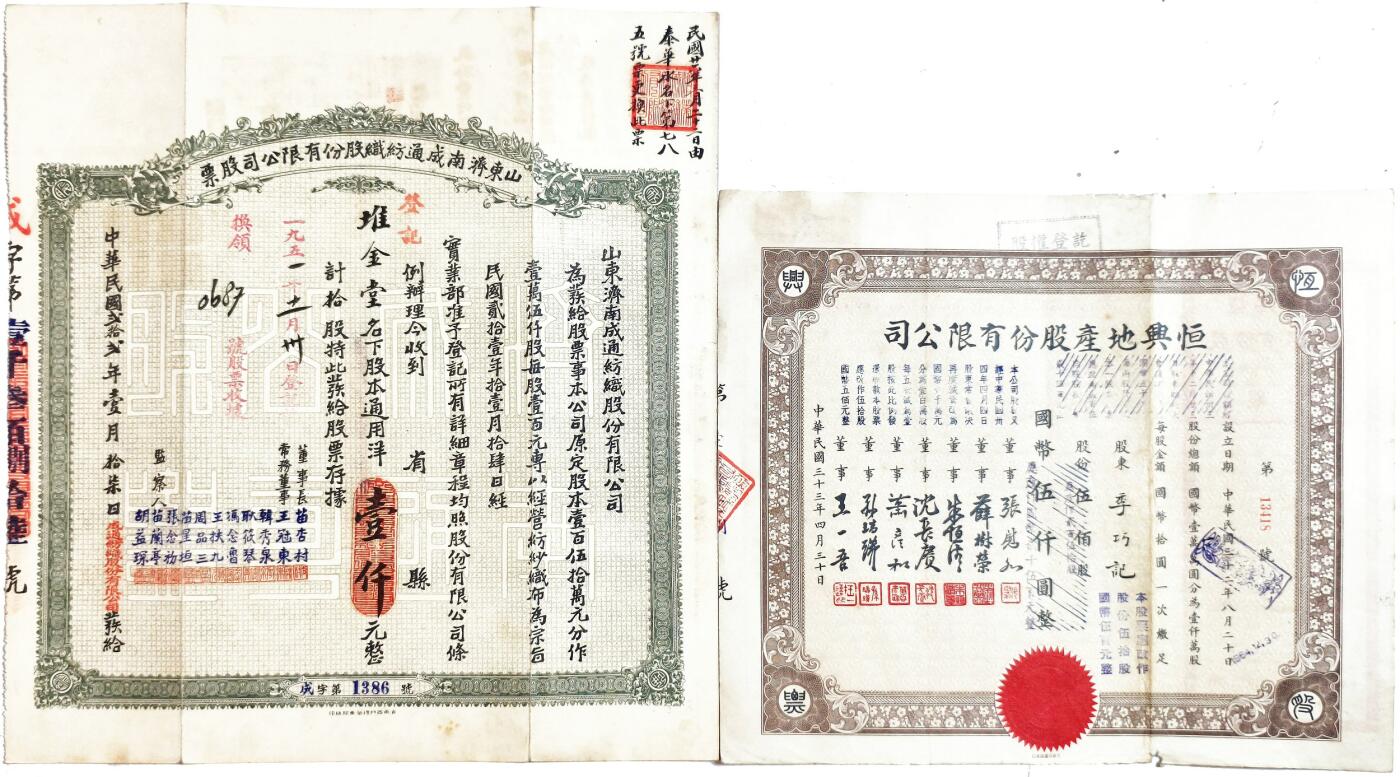 民國廿二年一月二十二日由
泰華永名下第七八
五號票更換此票
山東濟南成通紡織股份有限公司股票
山東濟南成通紡織股份有限公司
為發給股票事本公司原定股本壹百伍拾萬元分作
壹萬伍仟股每股壹百元專以經營紡紗織布為宗旨
民國貳拾壹年拾壹月拾肆日經
實業部准予登記所有詳細章程均照股份有限公司條
例辦理今收到 省 縣
堆金堂名下股本通用洋壹仟元整
計拾股特此發給股票存據
登記
一九五一年十一月卅日登
換領
0687
號股票收據
董事長 苗杏村
常務董事 王冠東
韓秀泉
耿筱琴
馮念魯
王扶九
周品三
苗星垣
監察人 張念初
苗蘭亭
胡益琛
中華民國貳拾貳年壹月拾柒日成通紡織股份有限公司發給
成字第1386號
成字第壹仟叁佰捌拾陸號
股權登記
恒興
恆興地產股份有限公司
第 13418 號
設立日期 中華民國三十二年八月二十日
股份總額 國幣壹萬萬圓分為壹仟萬股
每股金額 國幣拾圓一次繳足
股東 季巧記
股份 伍佰股
國幣 伍仟圓整
本股票應改作
股份伍拾股
國幣伍百元整
四年四月四日
國幣
每五
股按此比例發
還
應改作伍拾股
國幣五佰元整
董事 張慰如
董事 薛琳榮
董事 朱恒清
董事 沈長賡
董事 葉彥和
董事 孫瑞璜
董事 王一吾
中華民國三十三年四月三十日